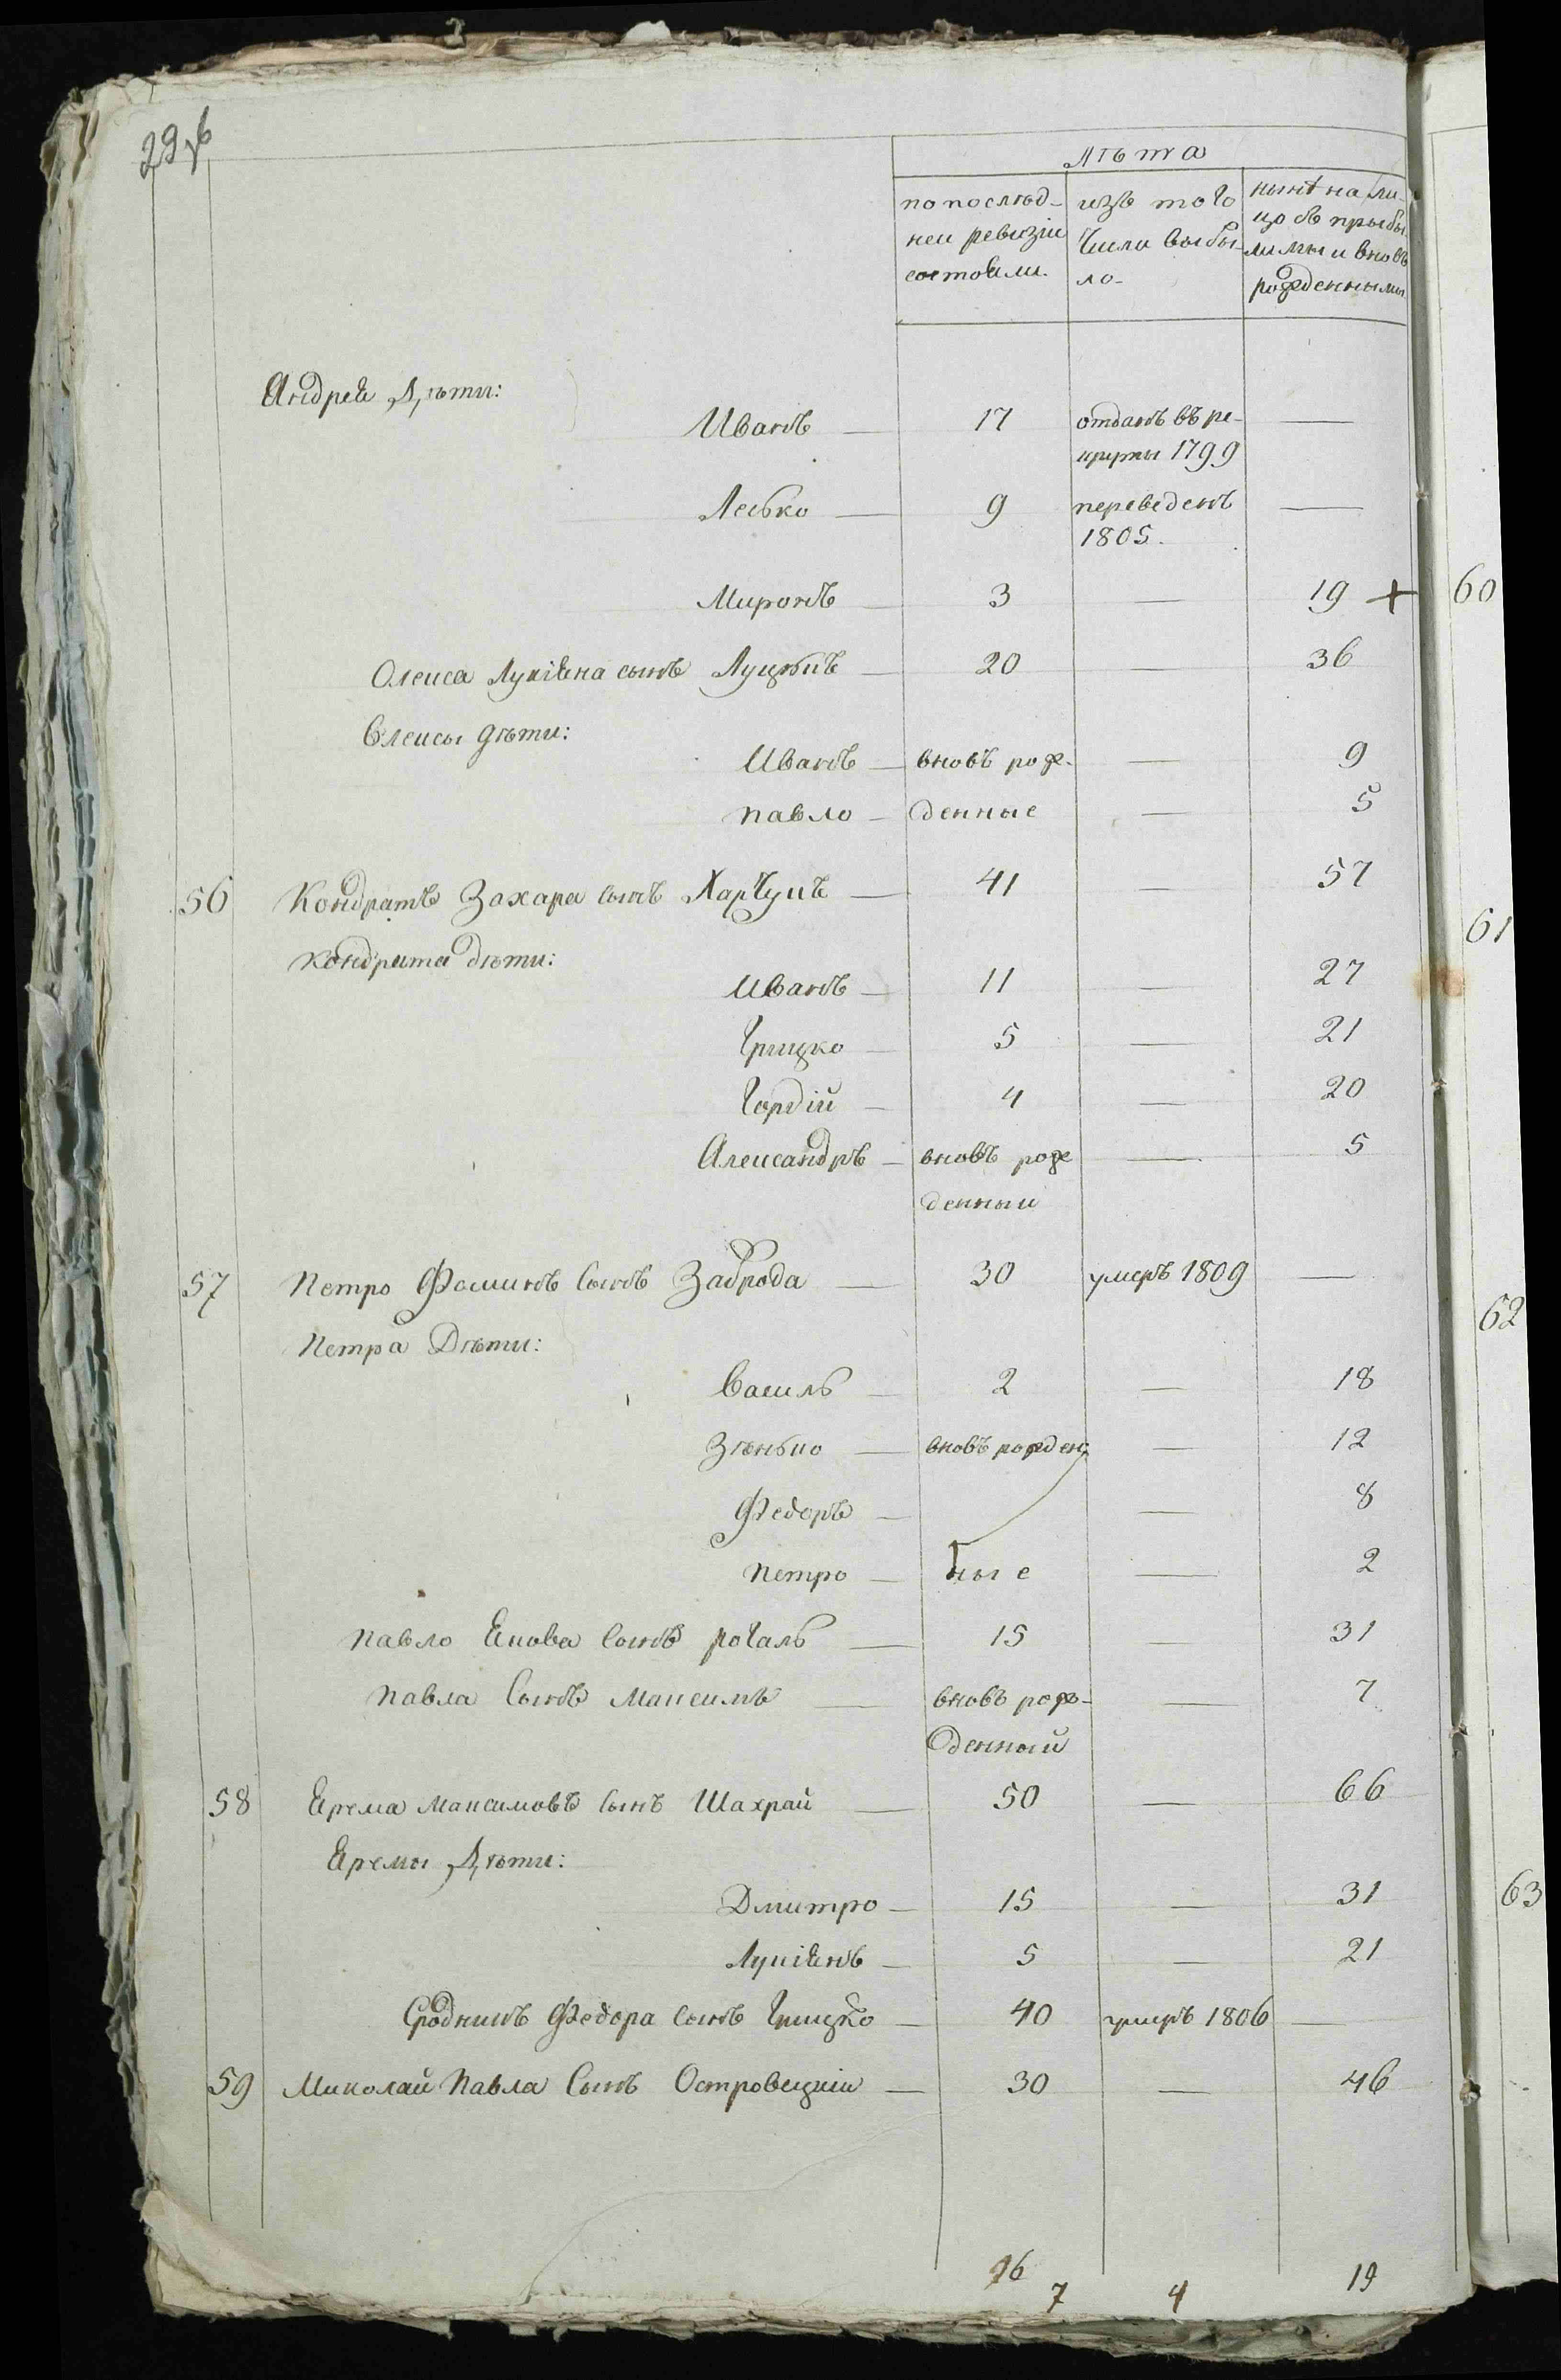 лѣта
по послѣд- изъ того нынѣ на ли-
ней ревизіи числа выбы- цо съ прыбы-
состояли. ло- лими и вновъ
рожденными
Андрея Дѣти:
Иванъ — 17 отданъ въ ре- —
круты 1799
Лесько — 9 переведенъ —
1805.
Миронъ — 3 — 19 +
Олекса Лукіяна сынъ Луцыкъ — 20 — 36
Олексы дѣти:
Иванъ — вновъ рож- — 9
павло — денные — 5
56 Кондратъ Захара сынъ Харчукъ — 41 — 57
Кондрата дѣти:
Иванъ — 11 — 27
Грицко — 5 — 21
Гордій — 4 — 20
Александръ — вновъ рож — 5
денныи
57 Петро Фоминъ сынъ Заброда — 30 умеръ 1809 —
Петра Дѣти:
Василь — 2 — 18
Зѣнько — вновъ рожден — 12
Федоръ — — 8
петро — ные — 2
павло Якова сынъ рогаль — 15 — 31
павла Сынъ Максимъ — вновъ рож- — 7
денный
58 Ярема Максимовъ сынъ Шахрай — 50 — 66
Яремы Дѣти:
Дмитро — 15 — 31
Лукіянъ — 5 — 21
Сродникъ Федора сынъ Грицко — 40 умеръ 1806 —
59 Миколай Павла Сынъ Островецкіи — 30 — 46
16 7 4 19
60
61
62
63